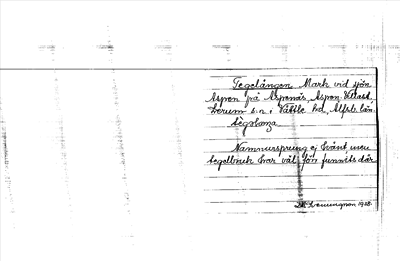 Tegelängen Mark vid sjön
Aspen på Aspenäs, Aspen
Lerum s:n, Vättle hd, Älfsb. län.
Namnursprung ej känt, men
tegelbruk har väl förr funnits där
1928